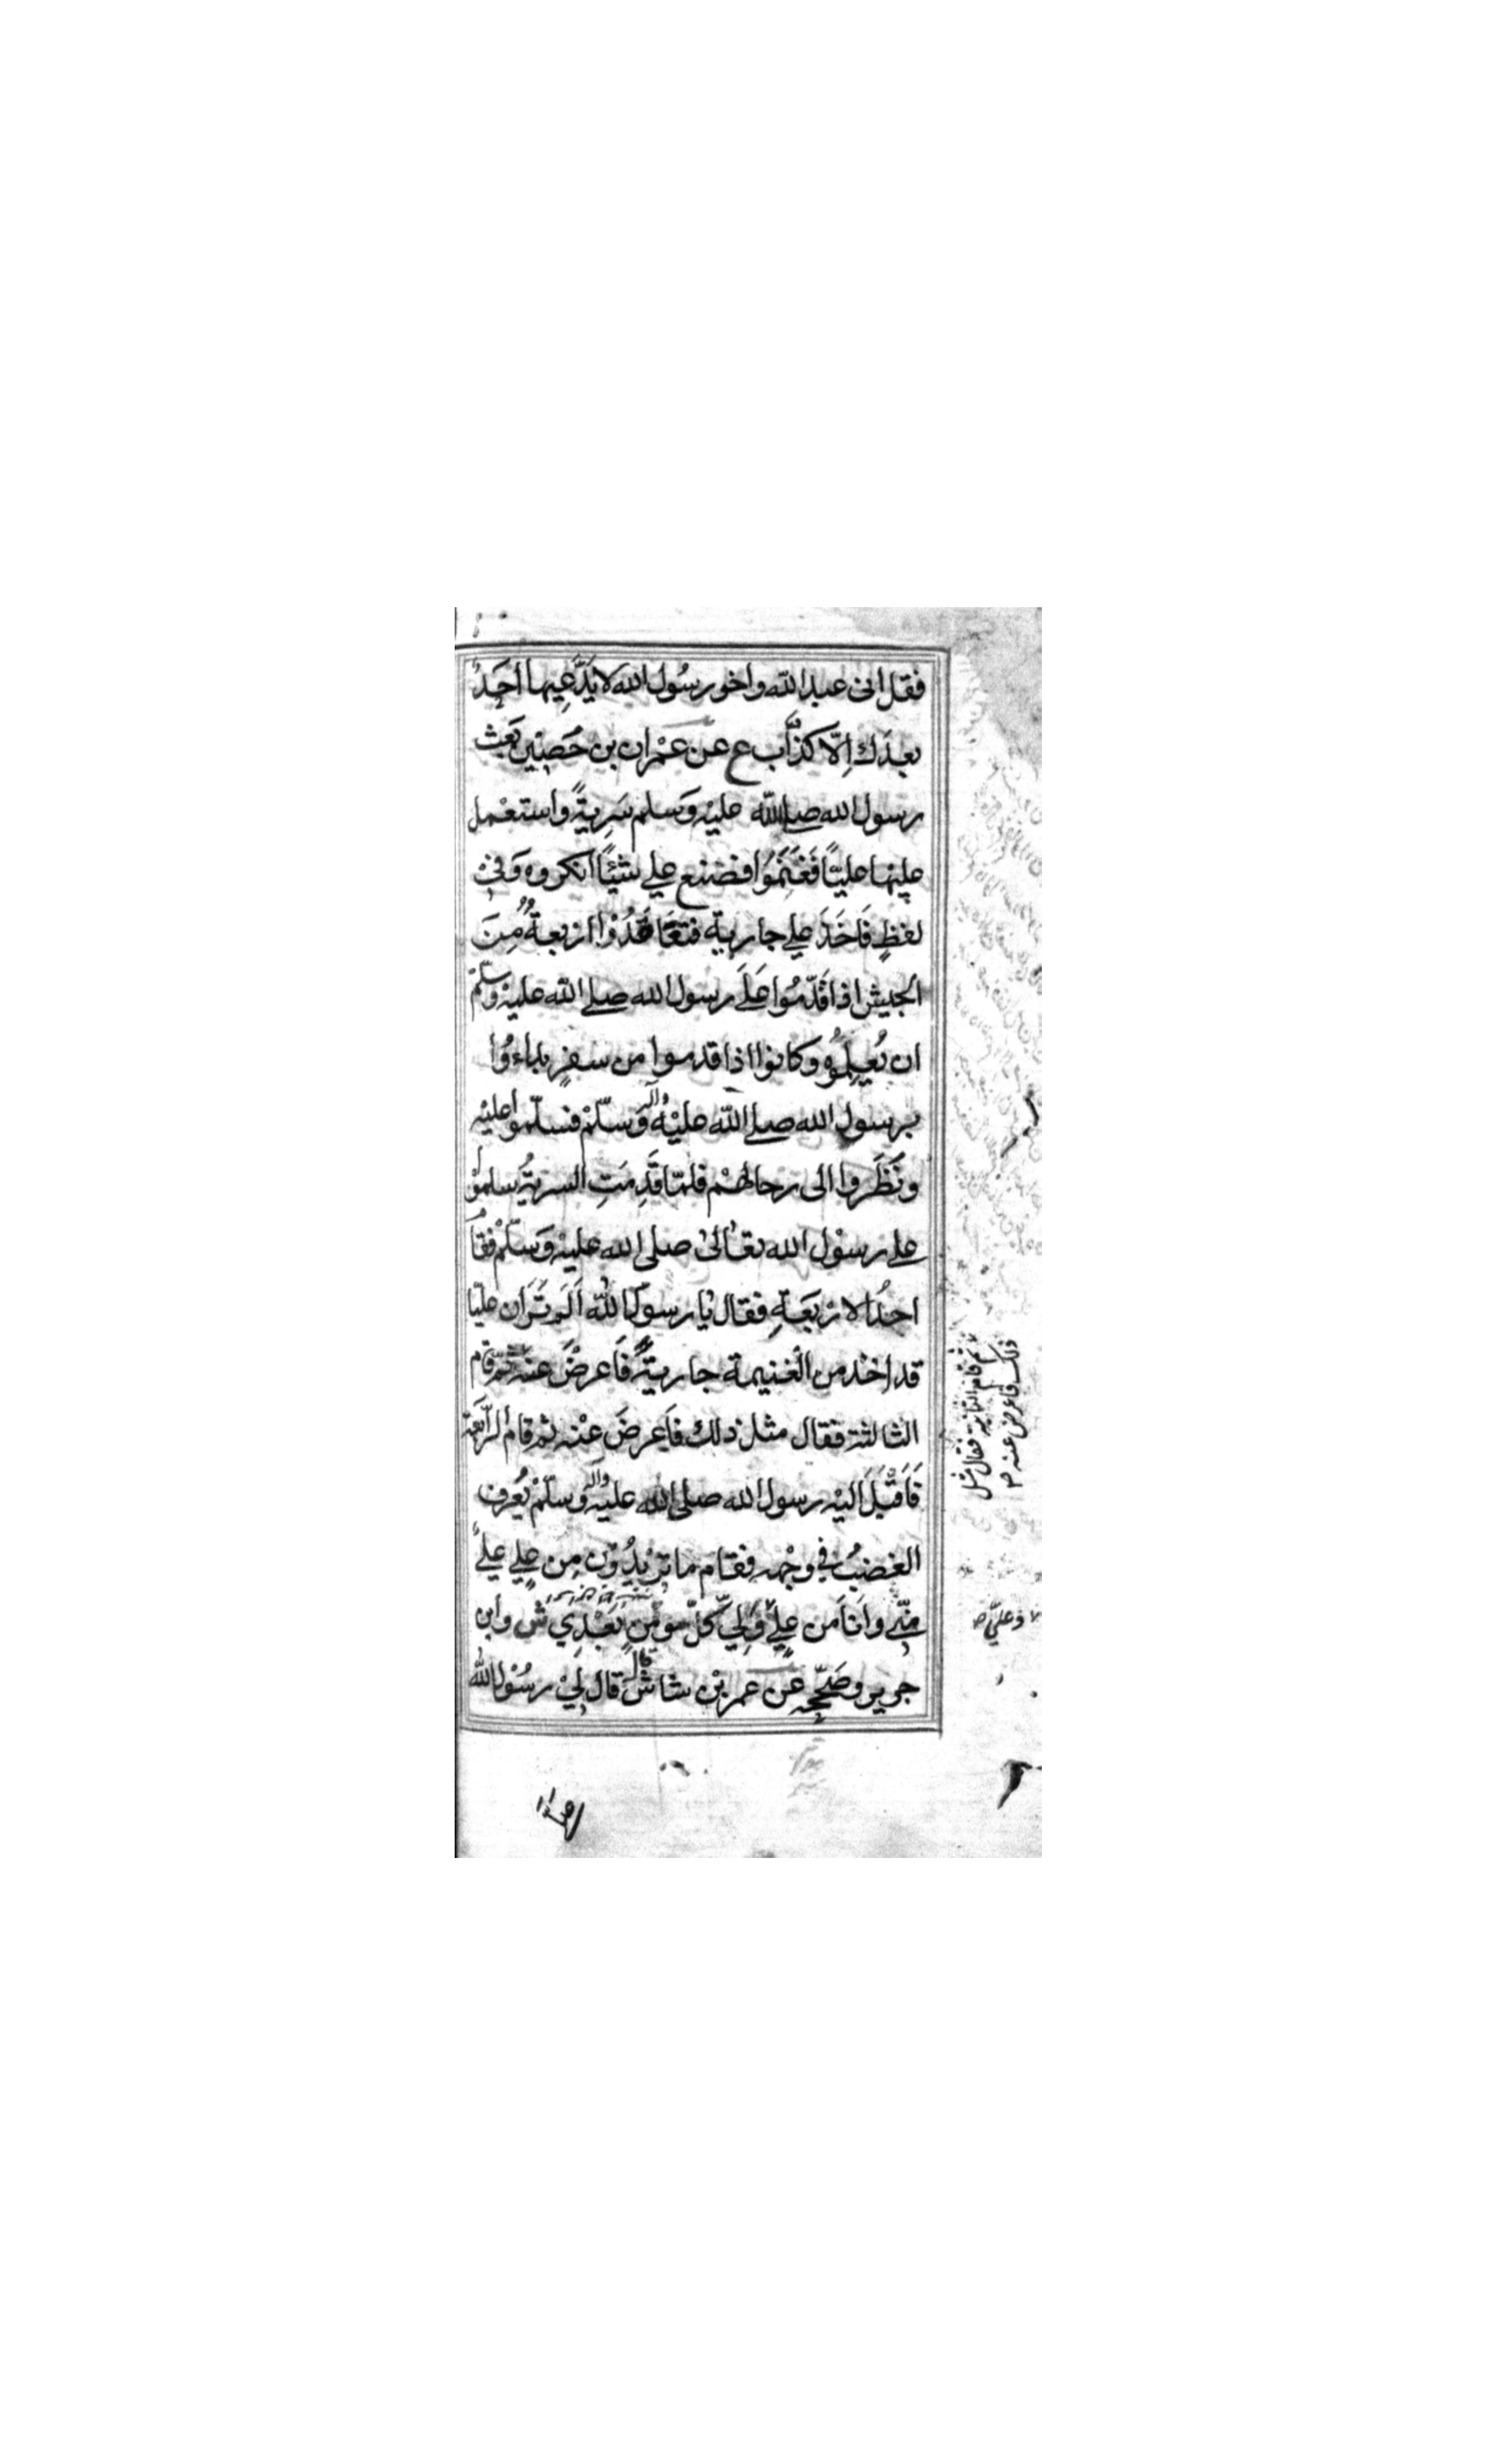 فقل انى عبد الله واخو رسُول الله لا يَدَّعِيها اَحَدٌ
بعدَك اِلّا كذّاب ع عن عمْران بن حُصيْن بَعَث
رسول الله صلى الله عليه وَسلم سَرِيةً واستعْمل
عليها عليّاً فَغَنِمُوا فصَنع علي شيْئًا انكروه وَفى
لفظٍ فَاَخَذَ علي جارية فتعَاقَدُوْا اربعةٌ مِّنَ
الجيش اذا قَدّمُوا عَلَى رسول الله صلى الله عليه وسلّمْ
ان يُعلِمُوْه وكانوا اذا قدموا من سفرٍ بداءوُا
برسول الله صلى الله عليْه واله وَسلّمْ فسلّموا عليْه
ونَظَروا الى رحالهْم فلمّا قَدِمَتِ السريةُ سلموْا
على رسوْل الله تعَالىٰ صلى الله عليه وَسلّمْ فقاَ
احدُ الارْبَعَةِ فقال يا رسوْلَ اللّه اَلَم تَرَ ان عليّا
قد اخذ من الْغنيمة جاريةً فَاَعرضَ عنه ثم قام
الثالثة فقال مثل ذلك فاَعرضَ عنْه ثم قام الرّابعة
فَاَقْبَلَ اليْه رسول الله صلى الله عليه واله وَسلّمْ يُعرف
الغضبُ فى وجْهه فقام ما تريْدُوْن مِن علىٍ علىٌ
مِنّى وانَا مَن علىٍّ وَلِيّ كلّ مومنٍ بَعْدِي ش وابن
جرير وصَحّحه عن عمر بْن شاش قال قال لِيْ رسُوْل الله
ثم قام الثانية فقال مثل
ذلك فاعرض عنه ص
وعلىّ ص